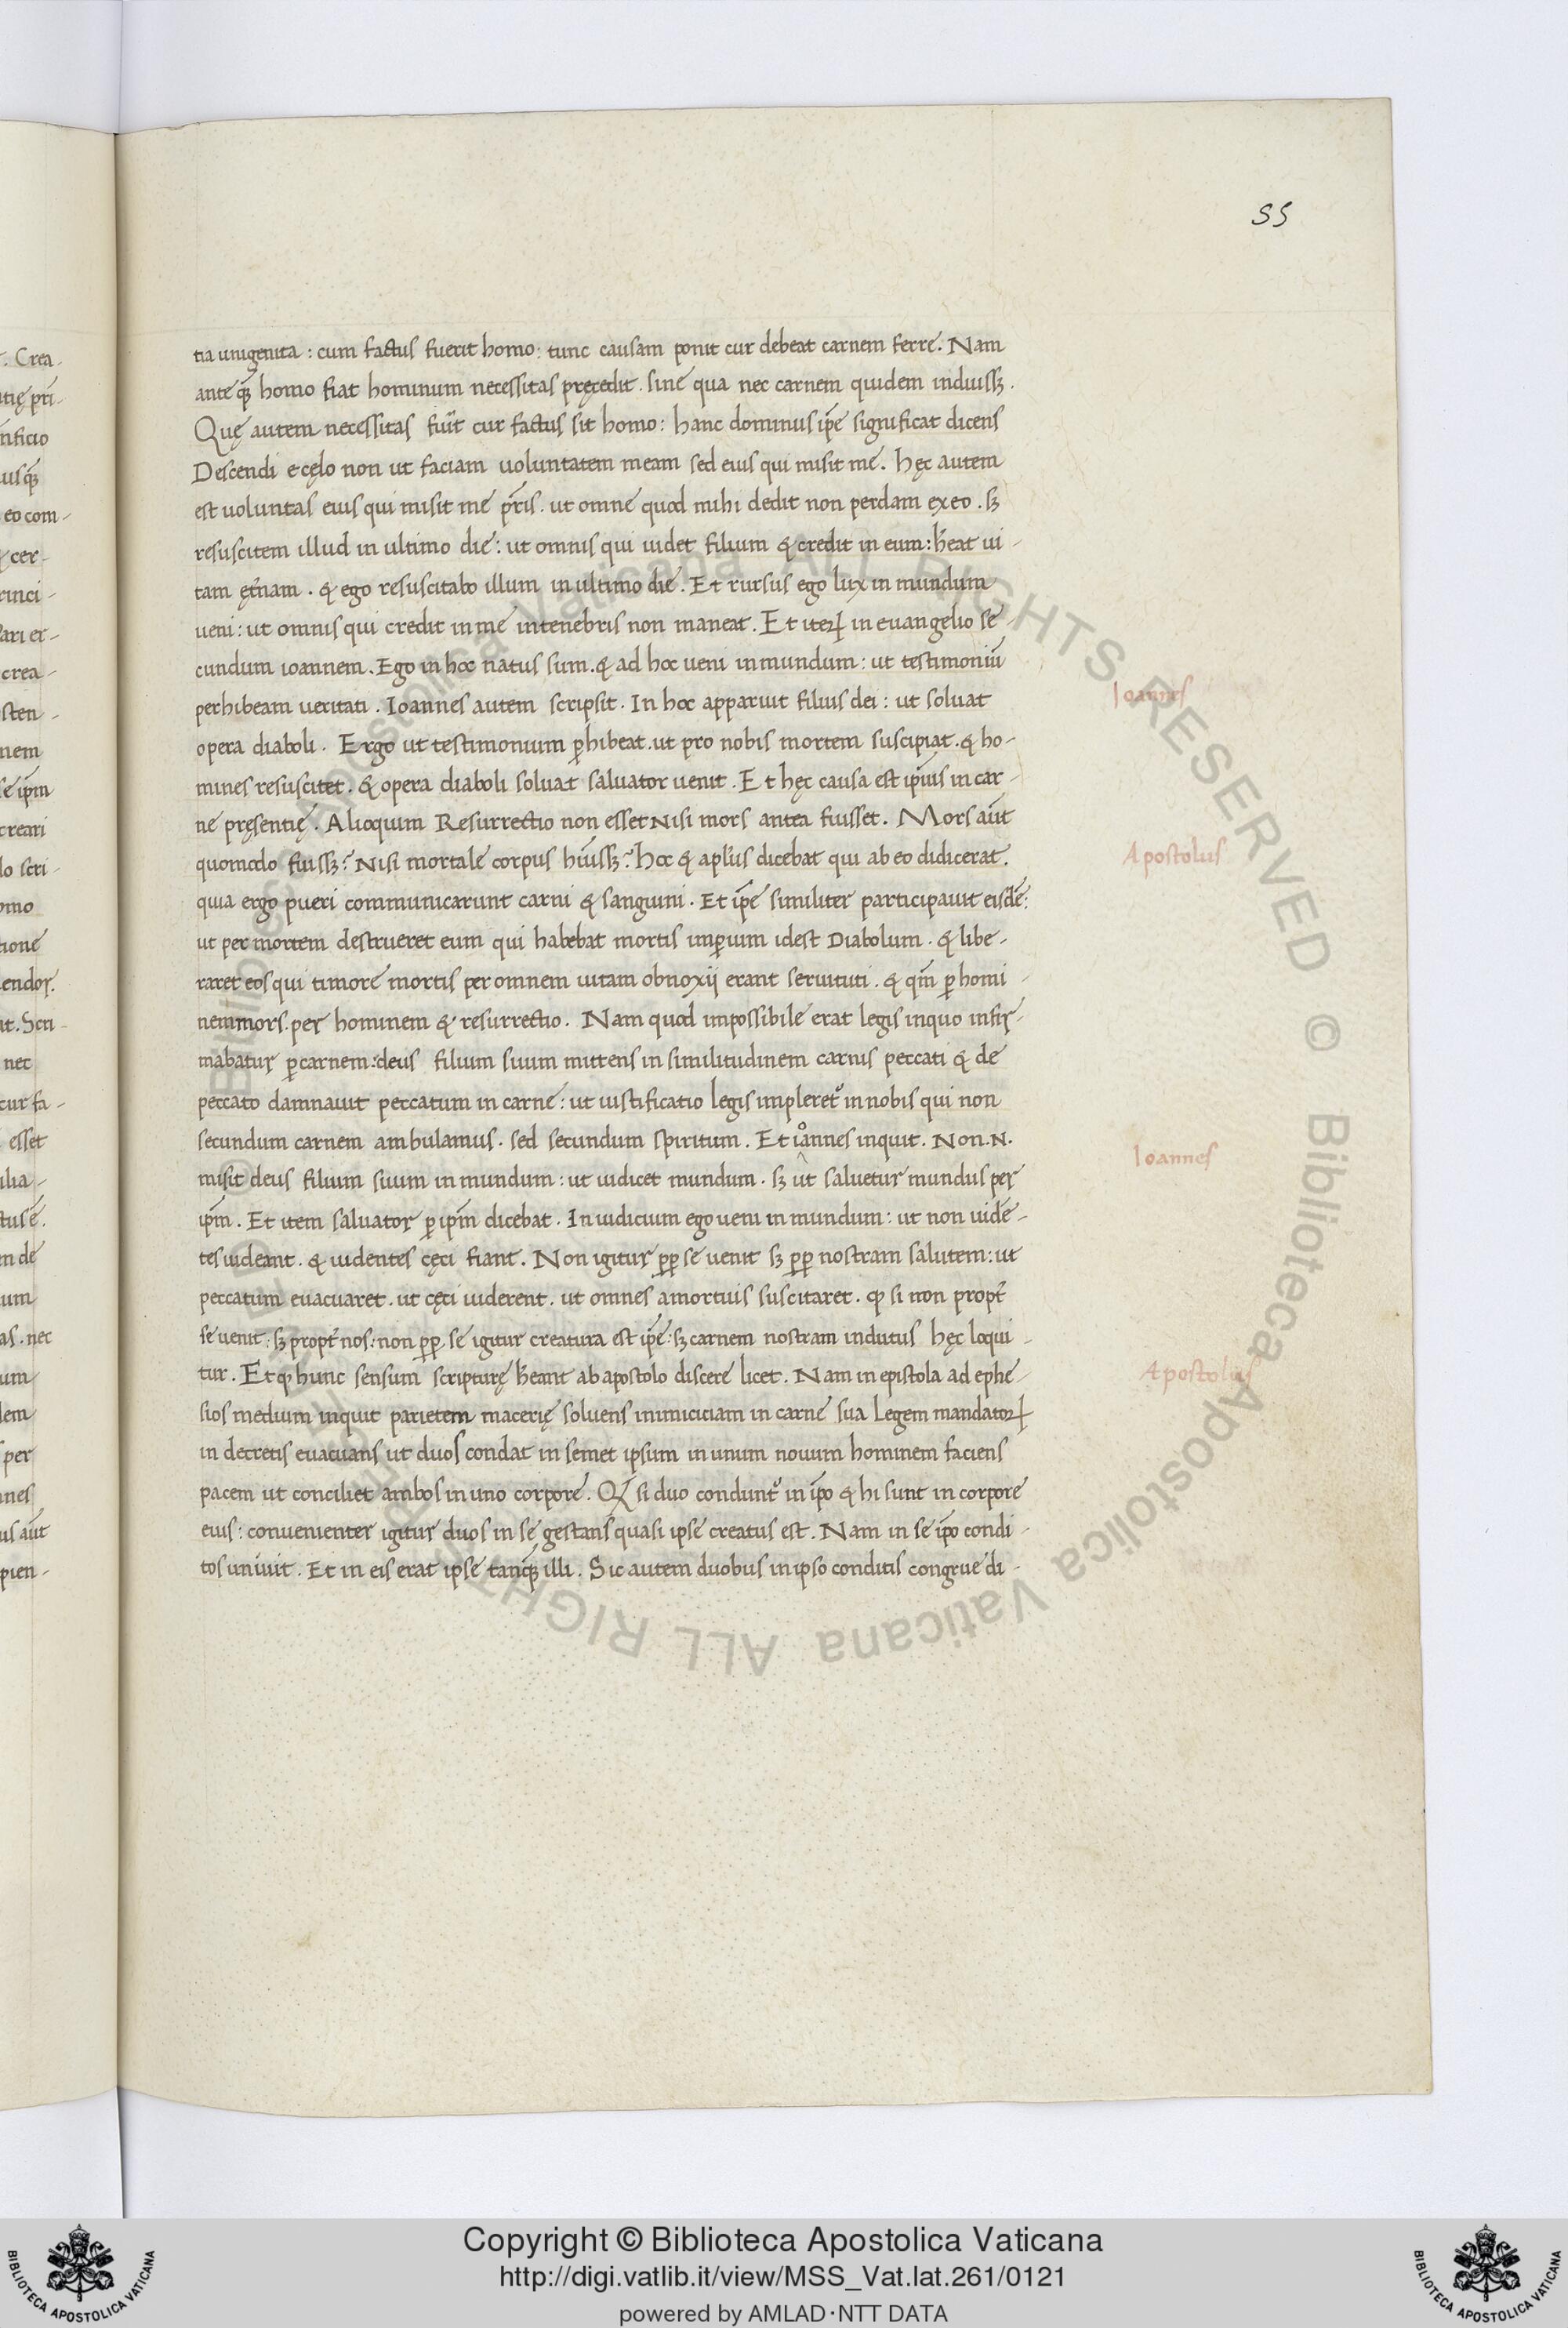 55
tia unigenita : cum factus fuerit homo: tunc causam ponit cur debeat carnem ferre. Nam
ante qꝫ homo fiat hominum necessitas pręcedit . sine qua nec carnem quidem induissꝫ .
Quę autem necessitas fuit cur factus sit homo: hanc dominus ip̄e significat dicens
Descendi e cęlo non ut faciam uoluntatem meam sed eius qui misit me. hęc autem
est uoluntas eius qui misit me pr̄is . ut omne quod mihi dedit non perdam ex eo . sꝫ
resuscitem illud in ultimo die : ut omnis qui uidet filium & credit in eum : h̄eat ui-
tam ęt̄nam . & ego resuscitabo illum in ultimo die . Et rursus ego lux in mundum
ueni : ut omnis qui credit in me in tenebris non maneat . Et iteꝝ in euangelio se-
cundum ioannem . Ego in hoc natus sum . & ad hoc ueni in mundum : ut testimoniū
perhibeam ueritati . Ioannes autem scripsit . In hoc apparuit filius dei : ut soluat
opera diaboli . Ergo ut testimonium ꝑhibeat . ut pro nobis mortem suscipiat . & ho-
mines resuscitet . & opera diaboli soluat saluator uenit . Et hęc causa est ip̄ius in car-
ne pręsentię . Alioquum Resurrectio non esset Nisi mors antea fuisset . Mors aūt
quomodo fuissꝫ ? Nisi mortale corpus h̄uissꝫ ? Hoc & apl̄us dicebat qui ab eo didicerat .
quia ergo pueri communicarunt carni & sanguini . Et ip̄e similiter participauit eisdē :
ut per mortem destrueret eum qui habebat mortis imꝑium idest Diabolum . & libe-
raret eos qui timore mortis per omnem uitam obnoxij erant seruituti . & qm̄ ꝑ homi-
nem mors . per hominem & resurrectio . Nam quod impossibile erat legis in quo infir-
mabatur ꝑ carnem : deus filium suum mittens in similitudinem carnis peccati & de
peccato damnauit peccatum in carne : ut iustificatio legis impleret᷑ in nobis qui non
secundum carnem ambulamus . sed secundum spiritum . Et ioannes inquit . Non .N.
misit deus filium suum in mundum : ut iudicet mundum . sꝫ ut saluetur mundus per
ip̄m . Et item saluator ꝑ ip̄m dicebat . In iudicium ego ueni in mundum : ut non uidē-
tes uideant . & uidentes cęci fiant . Non igitur ꝓꝑ se uenit sꝫ ꝓꝑ nostram salutem : ut
peccatum euacuaret . ut cęci uiderent . ut omnes a mortuis suscitaret . ꝙ si non propt̄
se uenit . sꝫ propt̄ nos : non ꝓꝑ se igitur creatura est ip̄e : sꝫ carnem nostram indutus hęc loqui-
tur . Et ꝙ hunc sensum scripturę h̄eant ab apostolo discere licet . Nam in epistola ad ephe-
sios medium inquit parietem macerię soluens inimiciciam in carne sua Legem mandatoꝝ
in decretis euacuans ut duos condat in semet ipsum in unum nouum hominem faciens
pacem ut conciliet ambos in uno corpore . Qd̄ si duo condunt᷑ in ip̄o & hi sunt in corpore
eius : conuenienter igitur duos in se gestans quasi ipse creatus est . Nam in se ip̄o condi-
tos uniuit . Et in eis erat ipse tanqꝫ illi . Sic autem duobus in ipso conditis congrue di-
Ioannes
Apostolus
Ioannes
Apostolus
Copyright © Biblioteca Apostolica Vaticana
http://digi.vatlib.it/view/MSS_Vat.lat.261/0121
powered by AMLAD·NTT DATA
BIBLIOTECA APOSTOLICA VATICANA
BIBLIOTECA APOSTOLICA VATICANA